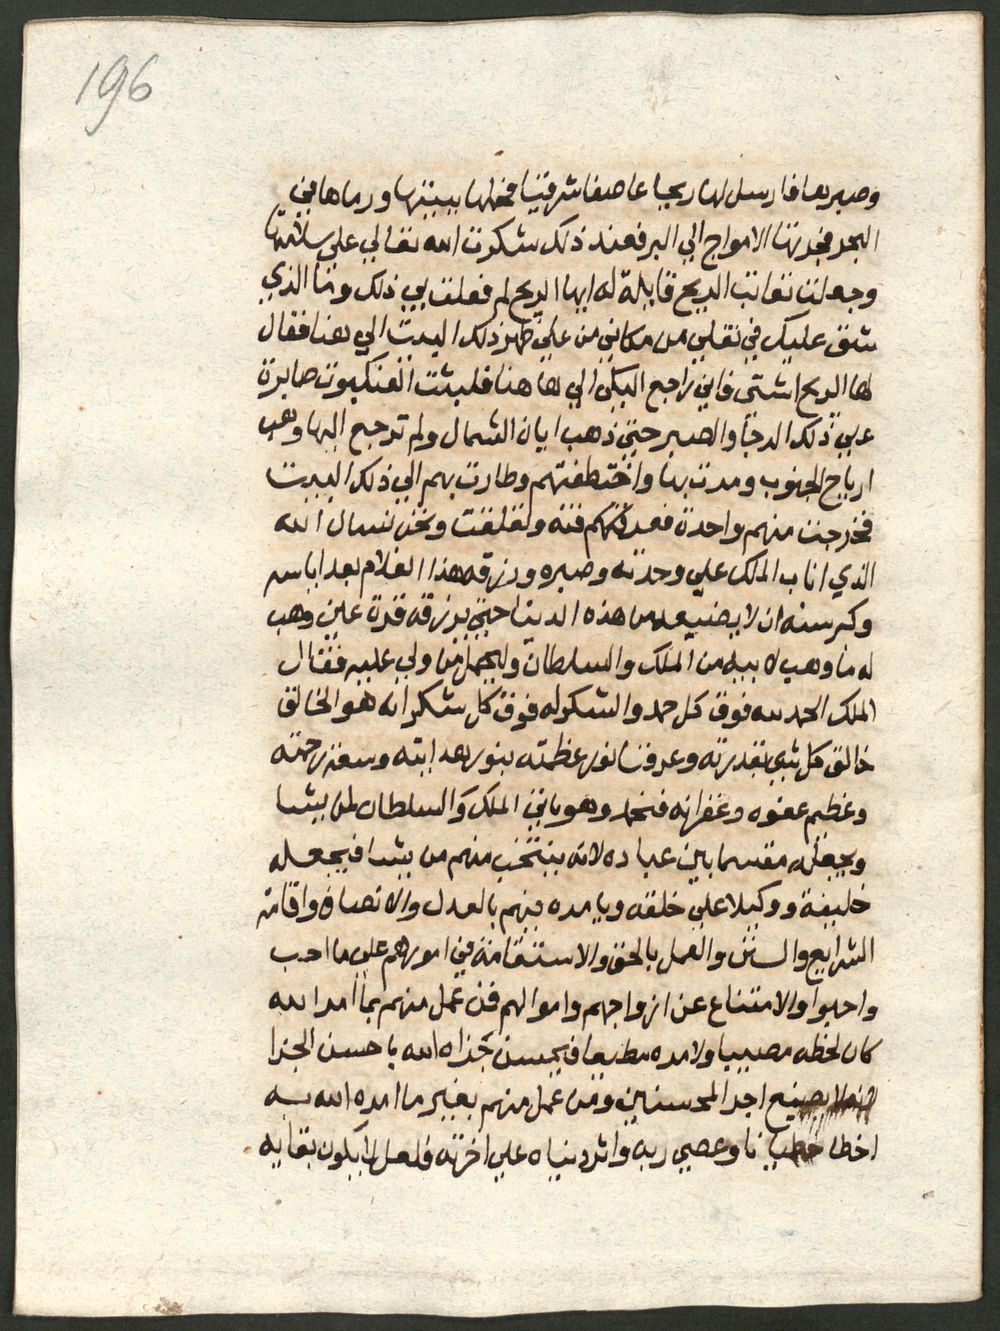 196
وصبرها فارسل لها ريحا عاصفا شرقيا فحملها ببيتها ورماها في
البحر فجرتها الامواج الي البر فعند ذلك شكرت الله تعالي علي سلامتها
وجعلت تعاتب الريح قايلة له ايها الريح لم فعلت بي ذلك وما الذي
شق عليك في نقلي من مكاني من علي ظهر ذلك البيت الي هنا فقال
لها الريح اثبتي فاني راجع اليكي الي هاهنا فلبثت العنكبوت صابرة
علي ذلك الرجا والصبر حتي ذهب ايان الشمال ولم ترجع اليها وهب
ارياح الجنوب ومرت بها واختطفتهم وطارت بهم الي ذلك البيت
فخرجت منهم واحدة فعرفتهم فته وتعلقت ونحن نسال الله
الذي اثاب الملك علي وحدته وصبره ورزقه هذا الغلام بعد اياسه
وكبر سنه ان لا يضيعه من هذه الدنيا حتي يرزقه قرة عين وهب
له ما وهب لابيه من الملك والسلطان وليجمل من ولي عليه فقال
الملك الحمد لله فوق كل حمد والشكر له فوق كل شكر انه هو الخالق
خالق كل شي بقدرته وعرفنا نور عظمته بنور هدايته وسعة رحمته
وعظم عفوه وغفرانه فنحمد وهو ياتي الملك والسلطان لمن يشا
ويجعله مقسما بين عباده لانه ينتخب منهم من يشا فيجعله
خليفة ووكيلا علي خلقه ويامره فيهم بالعدل والانصاف واقامة
الشرايع والسنن والعمل بالحق والاستقامة في امورهم علي ما احب
واحبوا والامتناع عن ازواجهم واموالهم فمن عمل منهم بما امر الله
كان لحظه مصيبا ولامره مطيعا فيحسن جزاه الله باحسن الجزا
يضيع اجر المحسنين ومن عمل منهم بغير ما امره الله به
اخطا نا وعصي ربه واثر دنياه علي اخرته فلعل لايكون بقايه